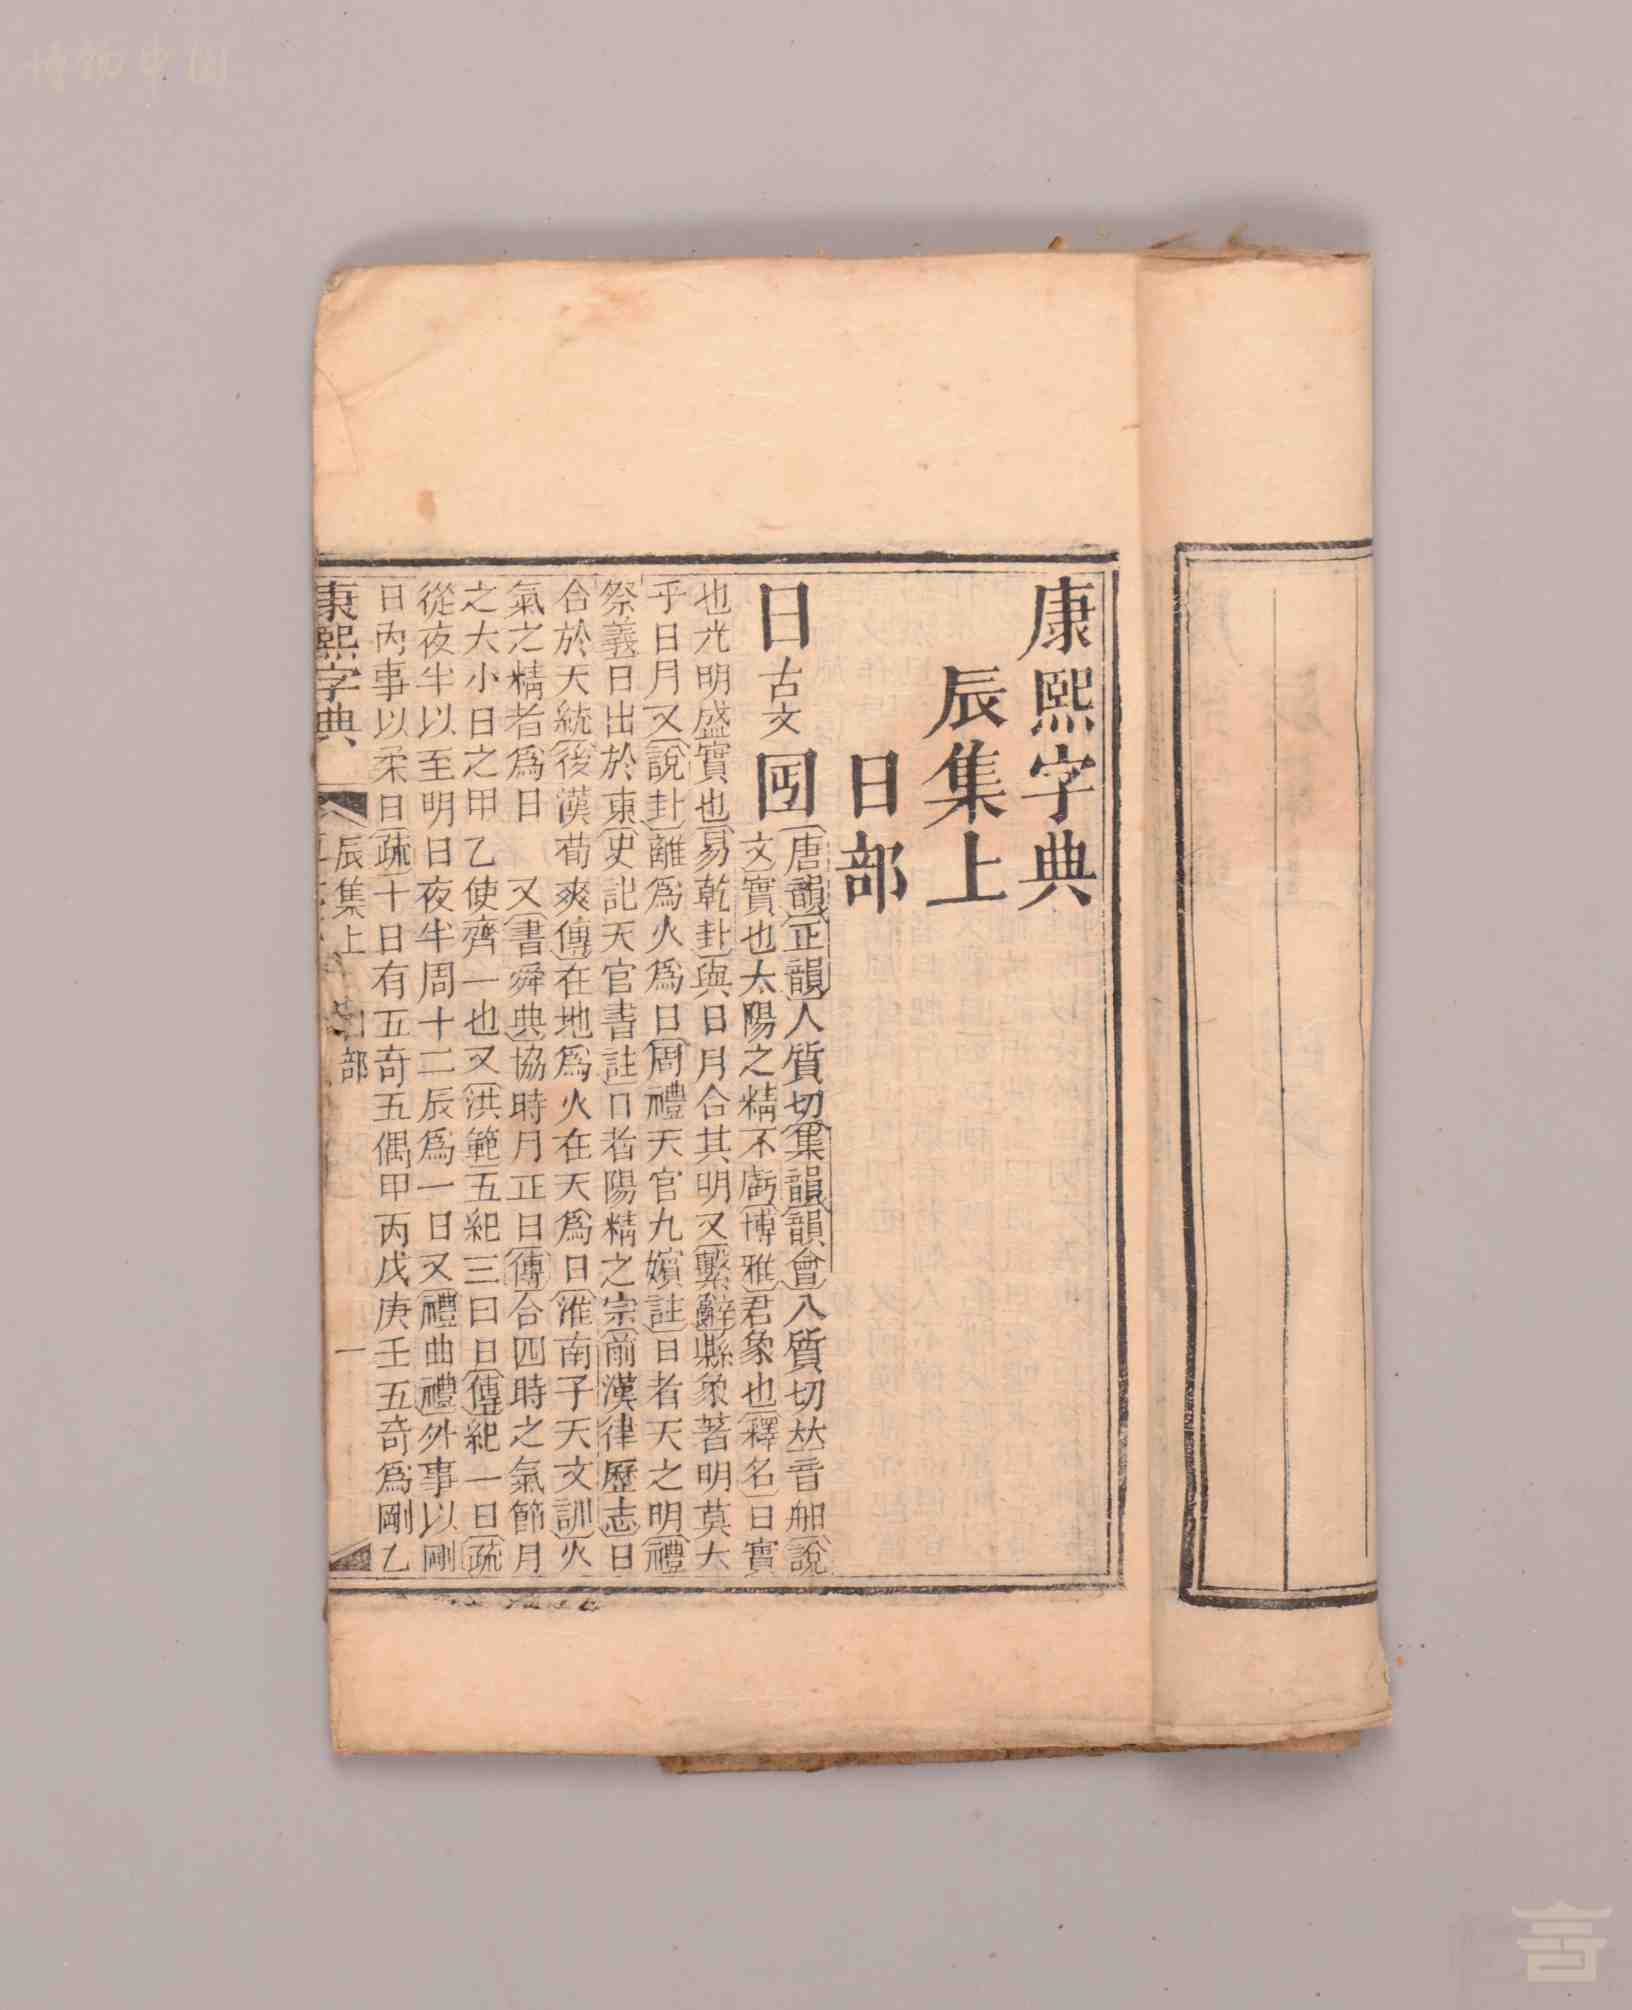 康熙字典
辰集上
日部
日 古文 囸 唐韻正韻人質切集韻韻會入質切𠀤音馹說
文實也太陽之精不虧博雅君象也釋名日實
也光明盛實也易乾卦與日月合其明又繫辭縣象著明莫大
乎日月又說卦離爲火爲日周禮天官九嬪註日者天之明禮
祭義日出於東史記天官書註日者陽精之宗前漢律歷志日
合於天統後漢荀爽傳在地爲火在天爲日淮南子天文訓火
氣之精者爲日 又書舜典協時月正日傳合四時之氣節月
之大小日之甲乙使齊一也又洪範五紀三曰日傳紀一日疏
從夜半以至明日夜半周十二辰爲一日又禮曲禮外事以剛
日內事以柔日疏十日有五奇五偶甲丙戊庚壬五奇爲剛乙
康熙字典 辰集上 日部 一
博物中国